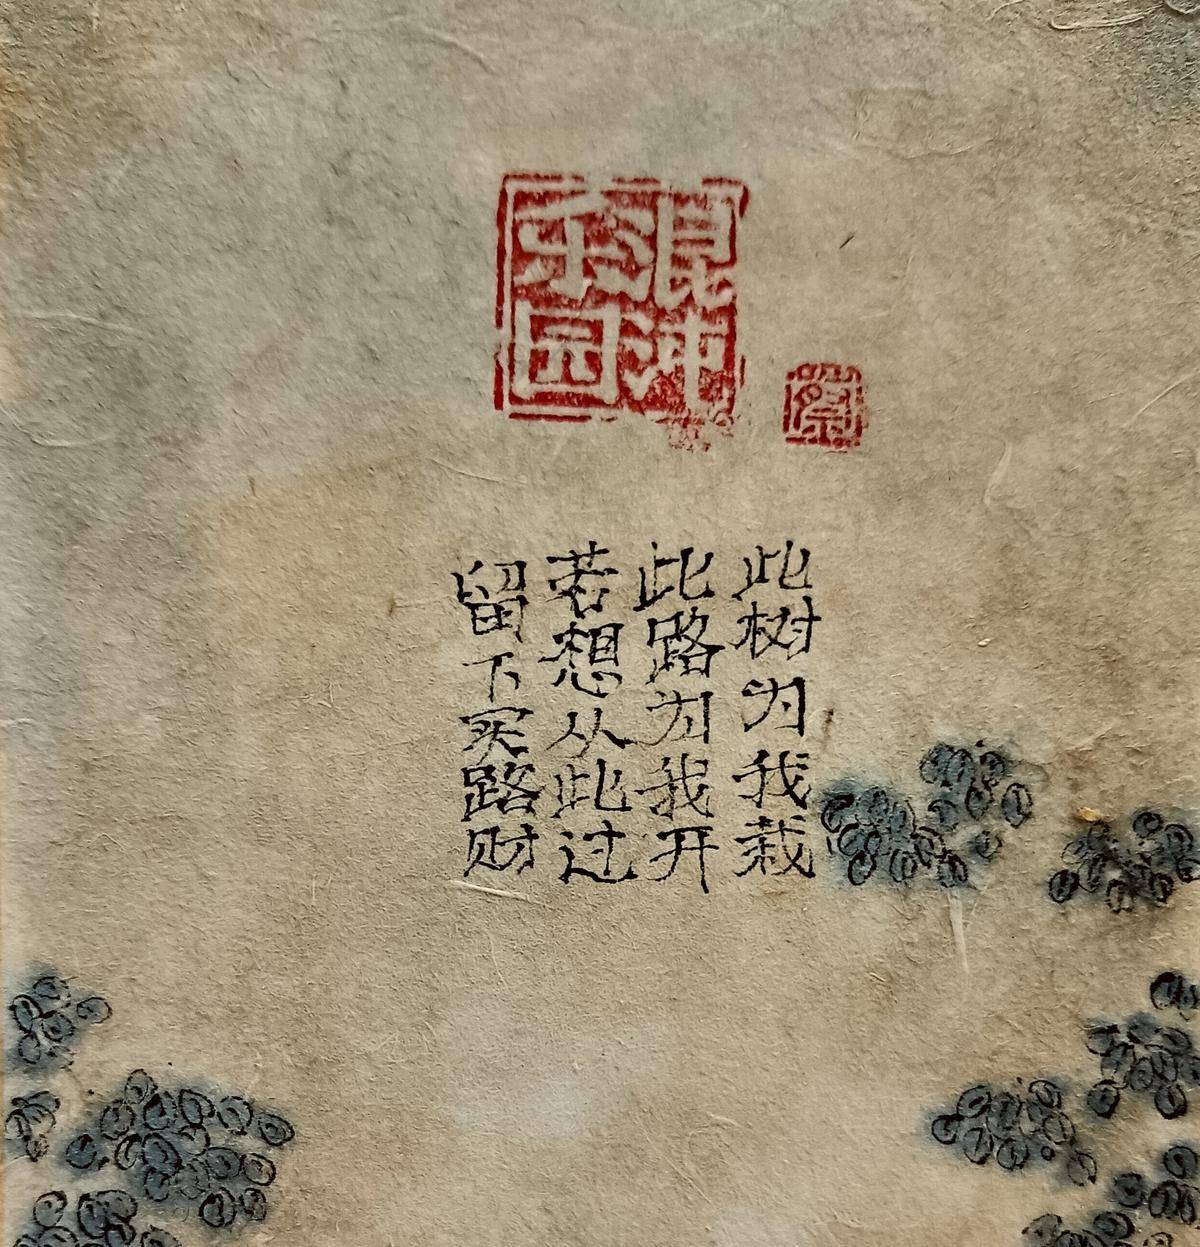 浪
乐园
此树为我栽
此路为我开
若想从此过
留下买路财